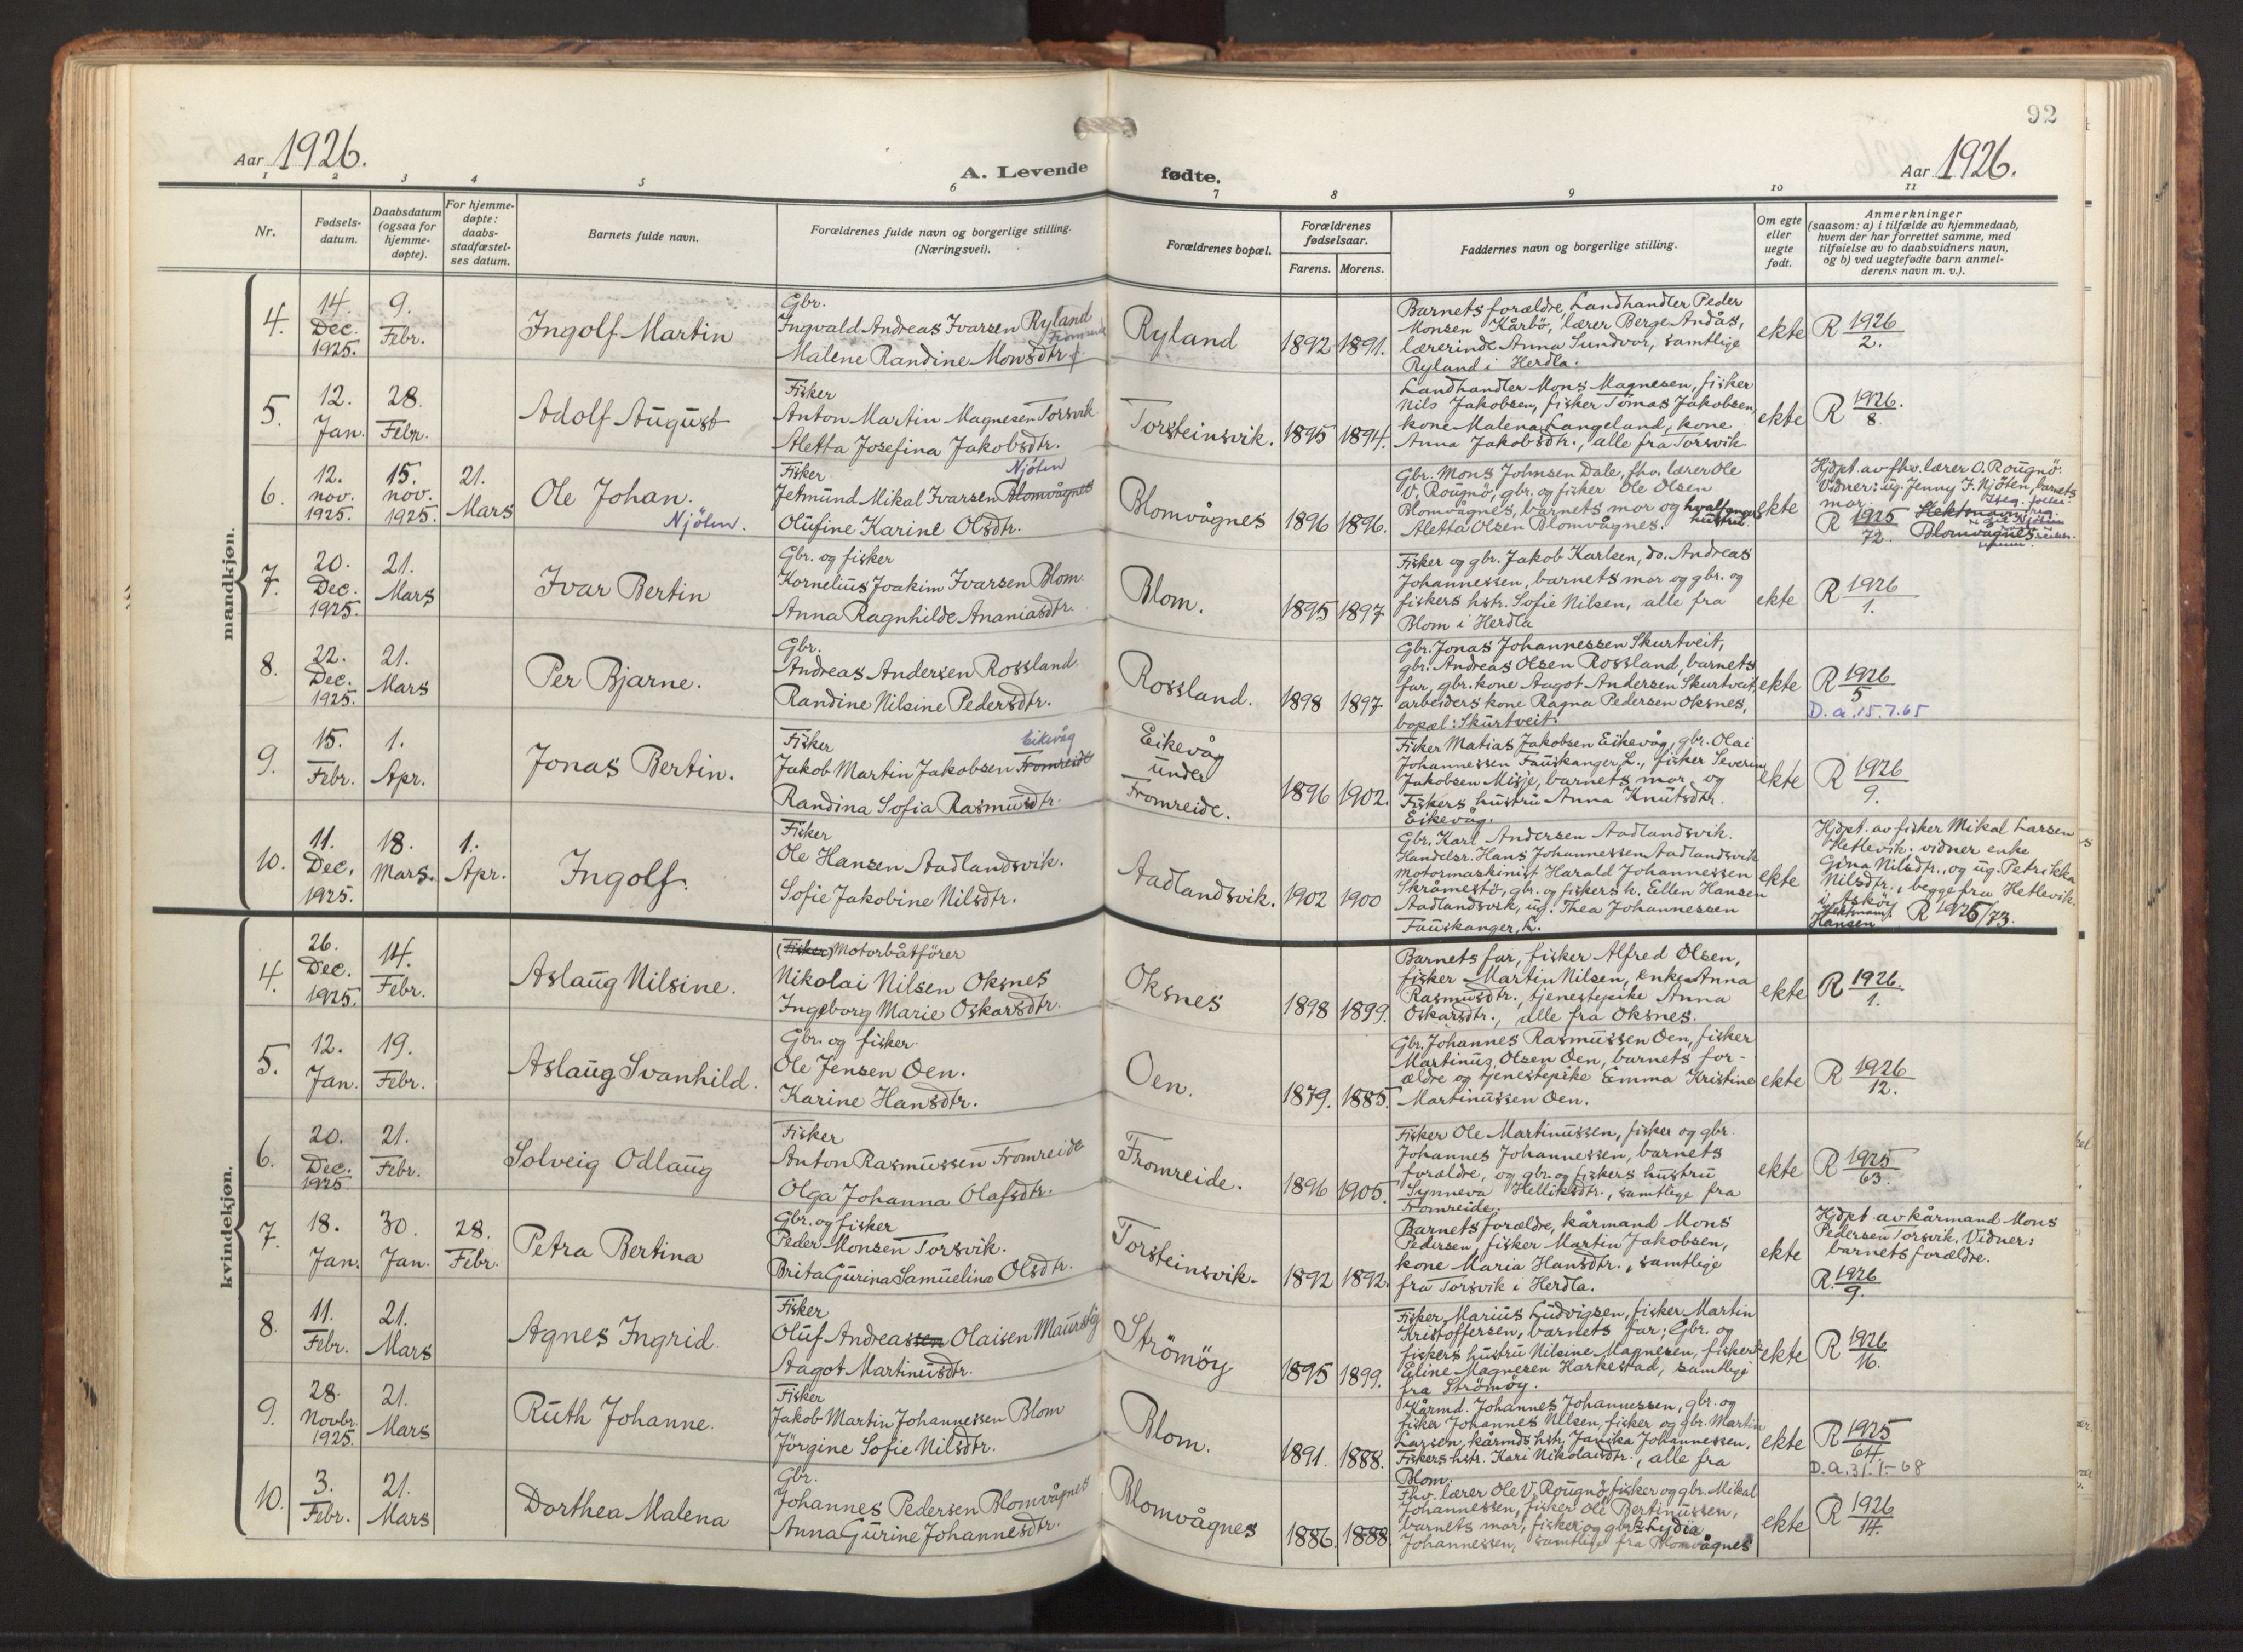 92
Aar 1926.
A. Levende fødte.
Aar 1926.
1 2 3 4 5 6 7 8 9 10 11
Nr.
Fødsels-
datum.
Daabsdatum
(ogsaa for
hjemme-
døpte).
For hjemme-
døpte:
daabs-
stadfæstel-
ses datum.
Barnets fulde navn.
Forældrenes fulde navn og borgerlige stilling.
(Næringsvei).
Forældrenes bopæl.
Forældrenes
fødselsaar.
Farens. Morens.
Faddernes navn og borgerlige stilling.
Om egte
eller
uegte
født.
Anmerkninger
(saasom: a) i tilfælde av hjemmedaab,
hvem der har forrettet samme, med
tilføielse av to daabsvidners navn,
og b) ved uegtefødte barn anmel-
derens navn m. v.).
mandkjøn.
4.
14.
Dec.
1925.
9.
Febr.
Ingolf Martin
Gbr.
Ingvald Andreas Ivarsen Ryland
Malene Randine Monsdtr.
Ryland
1892 1891.
Barnets forældre, Landhandler Peder
Monsen Kårbø, lærer Berge Andås,
lærerinde Anna Sundvor, samtlige
Ryland i Herdla.
ekte
R 1926
2.
5.
12.
Jan.
28.
Febr.
Adolf August
Fisker
Anton Martin Magnesen Torsvik
Aletta Josefina Jakobsdtr.
Torsteinsvik.
1895 1894.
Landhandler Mons Magnesen, fisker
Nils Jakobsen, fisker Tomas Jakobsen,
kone Malena Langeland, kone
Anna Jakobsdtr., alle fra Torsvik
ekte
R 1926.
8.
6.
12.
nov.
1925.
15.
nov.
1925.
21.
Mars
Ole Johan.
Njøten.
Fisker Njøten
Jetmund Mikal Ivarsen Blomvågnes
Olufine Karine Olsdtr.
Blomvågnes
1896 1896.
Gbr. Mons Johnsen Dale, fhv. lærer Ole
V. Rougnø, gbr. og fisker Ole Olsen
Blomvågnes, barnets mor og hvalfanger
hustru
Aletta Olsen Blomvågnes.
ekte
Hjdpt. av fhv. lærer O. Rougnø.
Vidner: ug. Jenny J. Njøten, barnets
mor.
R 1925
72.
Blomvågnes
7.
20.
Dec.
1925.
21.
Mars
Ivar Bertin
Gbr. og fisker
Kornelius Joakim Ivarsen Blom
Anna Ragnhilde Ananiasdtr.
Blom.
1895 1897
Fisker og gbr. Jakob Karlsen, do. Andreas
Johannessen, barnets mor og gbr. og
fiskers hstr. Sofie Nilsen, alle fra
Blom i Herdla
ekte
R 1926
1.
8.
22.
Dec.
1925.
21.
Mars
Per Bjarne.
Gbr.
Andreas Andersen Rossland
Randine Nilsine Pedersdtr.
Rossland.
1898 1897
Gbr. Jonas Johannessen Skurtveit,
gbr. Andreas Olsen Rossland, barnets
far, gbr. kone Aagot Andersen Skurtveit,
arbeiders kone Ragna Pedersen Oksnes,
bopæl: Skurtveit.
ekte
R 1926
5
D.a. 15.7.65
9.
15.
Febr.
1.
Apr.
Jonas Bertin.
Fisker Eikevåg
Jakob Martin Jakobsen Fromreide
Randina Sofia Rasmusdtr.
Eikevåg
under
Fromreide.
1896 1902.
Fisker Matias Jakobsen Eikevåg, gbr. Olai
Johannessen Fauskanger, L., fisker Severin
Jakobsen Misje, barnets mor, og
Fiskers hustru Anna Knutsdtr.
Eikevåg.
ekte
R 1926
9.
10.
11.
Dec.
1925.
18.
Mars.
1.
Apr.
Ingolf.
Fisker
Ole Hansen Aadlandsvik.
Sofie Jakobine Nilsdtr.
Aadlandsvik.
1902 1900
Gbr. Karl Andersen Aadlandsvik.
Handelsr. Hans Johannessen Aadlandsvik
motormaskinist Harald Johannessen
Skråmestø, gbr. og fiskers h. Ellen Hansen
Aadlandsvik, ug. Thea Johannessen
Fauskanger, L.
ekte
Hjdpt. av fisker Mikal Larsen
Hetlevik. vidner enke
Gina Nilsdtr., og ug. Petrikka
Nilsdtr., begge fra Hetlevik.
i Askøy
Hansen R 1925/73.
kvindekjøn.
4.
26.
Dec.
1925.
14.
Febr.
Aslaug Nilsine.
(Fisker) Motorbåtfører
Nikolai Nilsen Oksnes
Ingeborg Marie Oskarsdtr.
Oksnes
1898 1899.
Barnets far, fisker Alfred Olsen,
fisker Martin Nilsen, enke Anna
Rasmusdtr., tjenestepike Anna
Oskarsdtr., alle fra Oksnes.
ekte
R 1926.
1.
5.
12.
Jan.
19.
Febr.
Aslaug Svanhild.
Gbr. og fisker
Ole Jensen Oen.
Karine Hansdtr.
Oen.
1879. 1885.
Gbr. Johannes Rasmussen Oen, fisker
Martinus Olsen Oen, barnets for-
ældre og tjenestepike Emma Kristine
Martinussen Oen.
ekte
R 1926
12.
6.
20.
Dec.
1925
21.
Febr.
Solveig Odlaug
Fisker
Anton Rasmussen Fromreide
Olga Johanna Olafsdtr.
Fromreide.
1896 1905.
Fisker Ole Martinussen, fisker og gbr.
Johannes Johannessen, barnets
forældre, og gbr. og fiskers hustru
Synneva Helliksdtr., samtlige fra
Fromreide.
ekte
R 1925
63.
7.
18.
Jan.
30.
Jan.
28.
Febr.
Petra Bertina
Gbr. og fisker
Peder Monsen Torsvik.
Brita Gurina Samuelina Olsdtr.
Torsteinsvik.
1892 1892.
Barnets forældre, kårmand Mons
Pedersen, fisker Martin Jakobsen,
kone Maria Hansdtr., samtlige
fra Torsvik i Herdla.
ekte
Hjdpt. av kårmand Mons
Pedersen Torsvik. Vidner:
barnets forældre.
R. 1926
9.
8.
11.
Febr.
21.
Mars
Agnes Ingrid.
Fisker
Oluf Andreassen Olaisen Maurstig
Aagot Martinusdtr.
Strömöy
1895 1899.
Fisker Marius Ludvigsen, fisker Martin
Kristoffersen, barnets far; Gbr. og
fiskers hustru Nilsine Magnesen, fisker
Eline Magnesen Harkestad, samtlige
fra Strömöy.
ekte
R 1926
16.
9.
28.
Novbr.
1925.
21.
Mars
Ruth Johanne.
Fisker
Jakob Martin Johannessen Blom
Jörgine Sofie Nilsdtr.
Blom.
1891. 1888.
Kårmd. Johannes Johannessen, gbr. og
fisker Johannes Nilsen, fisker og gbr. Martin
Larsen, kårmds hstr. Janika Johannessen,
Fiskers hstr. Kari Nikolaisdtr., alle fra
Blom.
ekte
R 1925
64.
D.a. 31.1.-68
10.
3.
Febr.
21.
Mars
Dorthea Malena
Gbr.
Johannes Pedersen Blomvågnes
Anna Gurine Johannesdtr.
Blomvågnes
1886. 1888.
Fhv. lærer Ole V. Rougnø, fisker og gbr. Mikal
Johannessen, fisker Ole Bertinussen,
barnets mor, fisker og gbr. h. Lydia
Johannessen, samtlige fra Blomvågnes
ekte
R 1926
14.